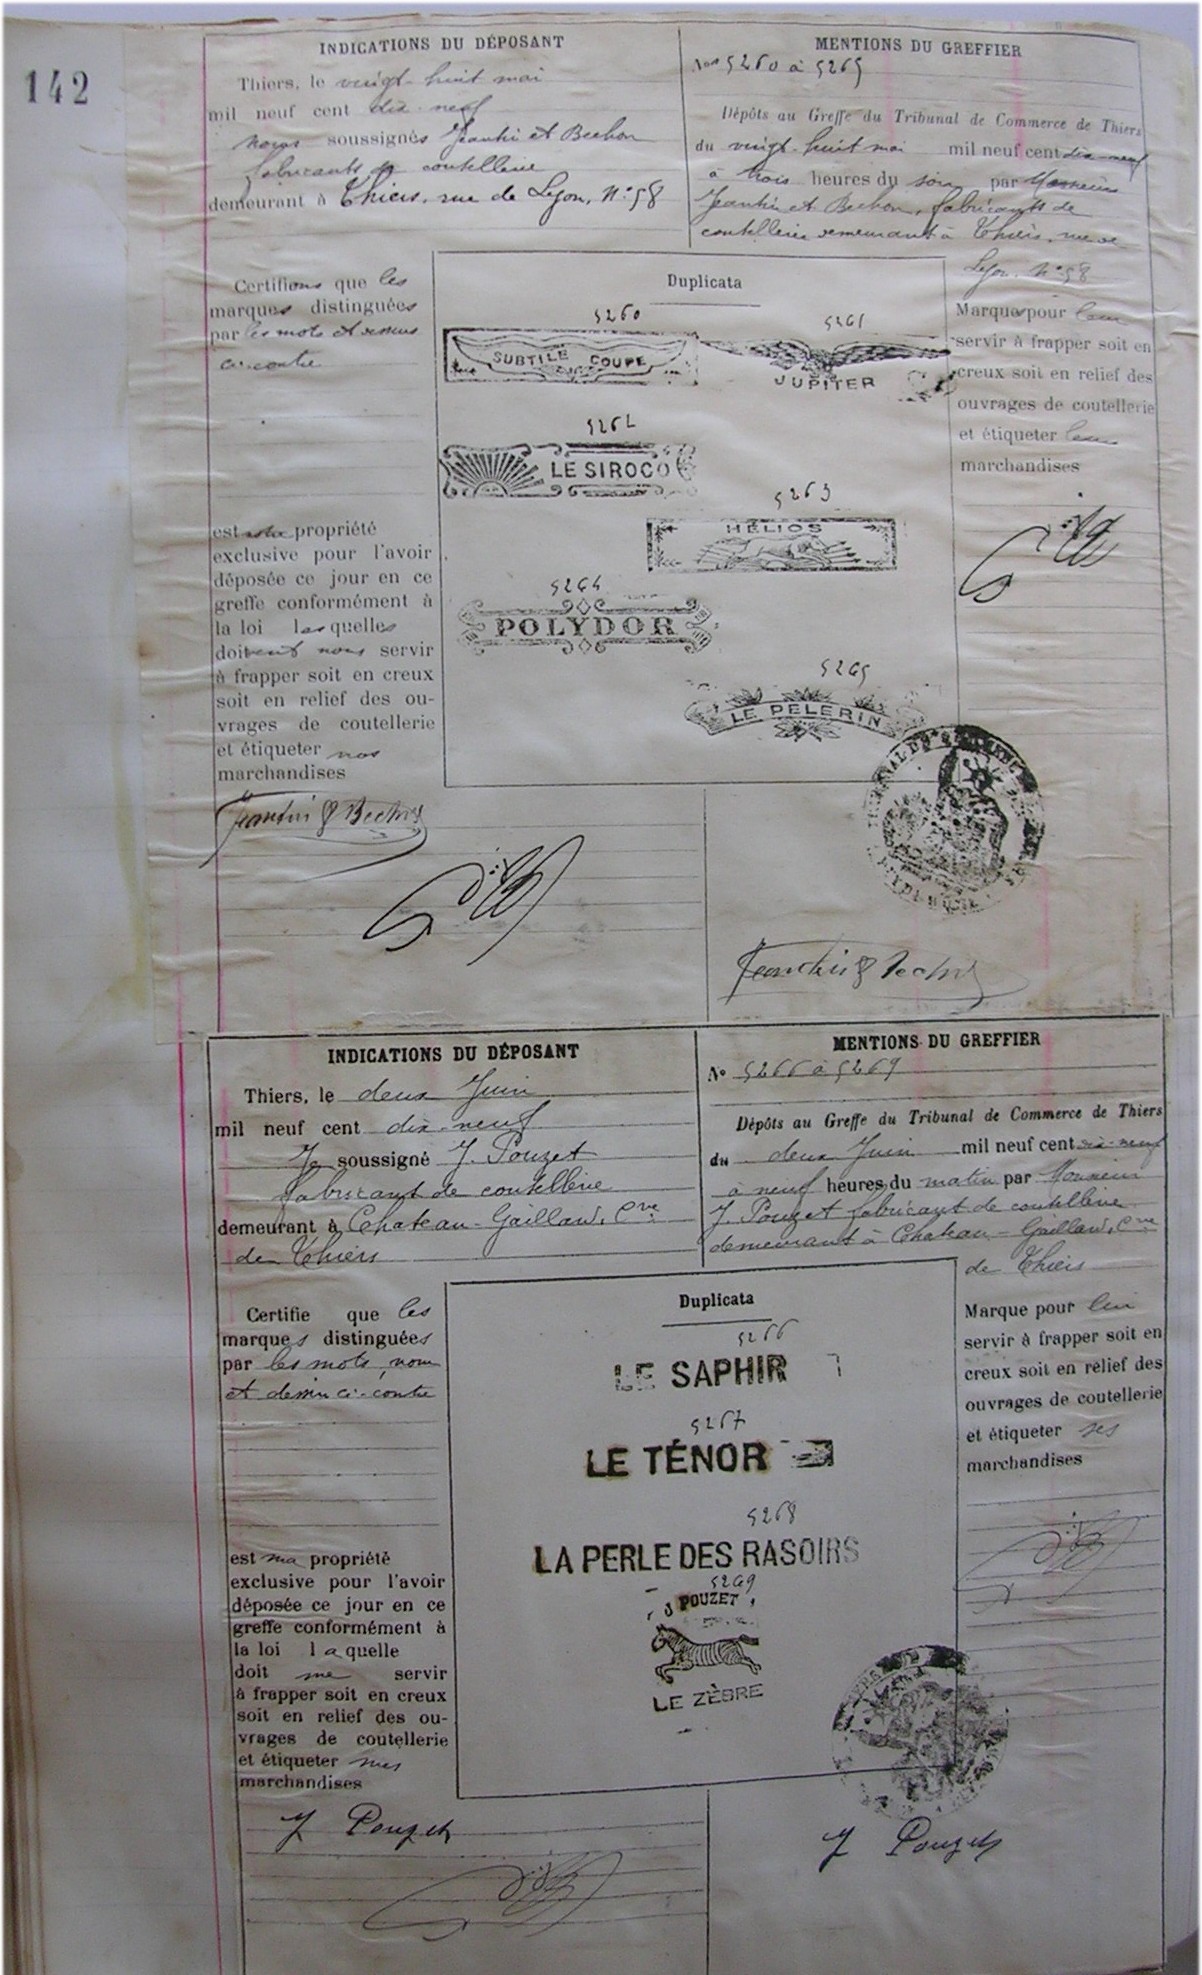 142
INDICATIONS DU DÉPOSANT
Thiers, le vingt-huit mai
mil neuf cent dix-neuf
nous soussignés Jeantin et Bechon
fabricants de coutellerie
demeurant à Thiers, rue de Lyon, N° 58
MENTIONS DU GREFFIER
Nos 5260 à 5265
Dépôts au Greffe du Tribunal de Commerce de Thiers
du vingt-huit mai mil neuf cent dix-neuf
à trois heures du soir par
Jeantin et Bechon, fabricants de
coutellerie demeurant à Thiers, rue de
Lyon, N° 58
Certifions que les
marques distinguées
par les mots et dessins
ci-contre
est notre propriété
exclusive pour l'avoir
déposée ce jour en ce
greffe conformément à
la loi lesquelles
doivent nous servir
à frapper soit en creux
soit en relief des ou-
vrages de coutellerie
et étiqueter nos
marchandises
Duplicata
5260
SUBTILE COUPE
5261
JUPITER
5262
LE SIROCO
5263
HÉLIOS
5264
POLYDOR
5265
LE PELERIN
Marques pour leur
servir à frapper soit en
creux soit en relief des
ouvrages de coutellerie
et étiqueter leurs
marchandises
Jeantin & Bechon
Jeantin & Bechon
INDICATIONS DU DÉPOSANT
Thiers, le deux Juin
mil neuf cent dix-neuf
Je soussigné J. Pouzet
fabricant de coutellerie
demeurant à Chateau-Gaillard, Cne
de Thiers
MENTIONS DU GREFFIER
No 5266 à 5269
Dépôts au Greffe du Tribunal de Commerce de Thiers
du deux Juin mil neuf cent dix-neuf
à neuf heures du matin par Monsieur
J. Pouzet fabricant de coutellerie
demeurant à Chateau-Gaillard, Cne
de Thiers
Certifie que les
marques distinguées
par les mots, nom
et dessin ci-contre
est ma propriété
exclusive pour l'avoir
déposée ce jour en ce
greffe conformément à
la loi laquelle
doit me servir
à frapper soit en creux
soit en relief des ou-
vrages de coutellerie
et étiqueter mes
marchandises
Duplicata
5266
LE SAPHIR
5267
LE TÉNOR
5268
LA PERLE DES RASOIRS
5269
J POUZET
LE ZÈBRE
Marque pour lui
servir à frapper soit en
creux soit en relief des
ouvrages de coutellerie
et étiqueter ses
marchandises
J Pouzet
J Pouzet